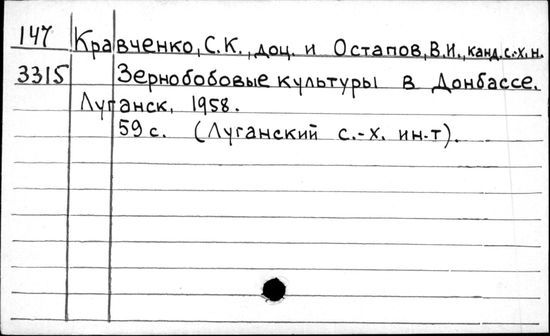 147 Кравченко, С.К., доц. и Остапов, В.И., канд. с.-х. н.
3315 Зернобобовые культуры в Донбассе.
Луганск, 1958.
59 с. (Луганский с.-х. ин-т).